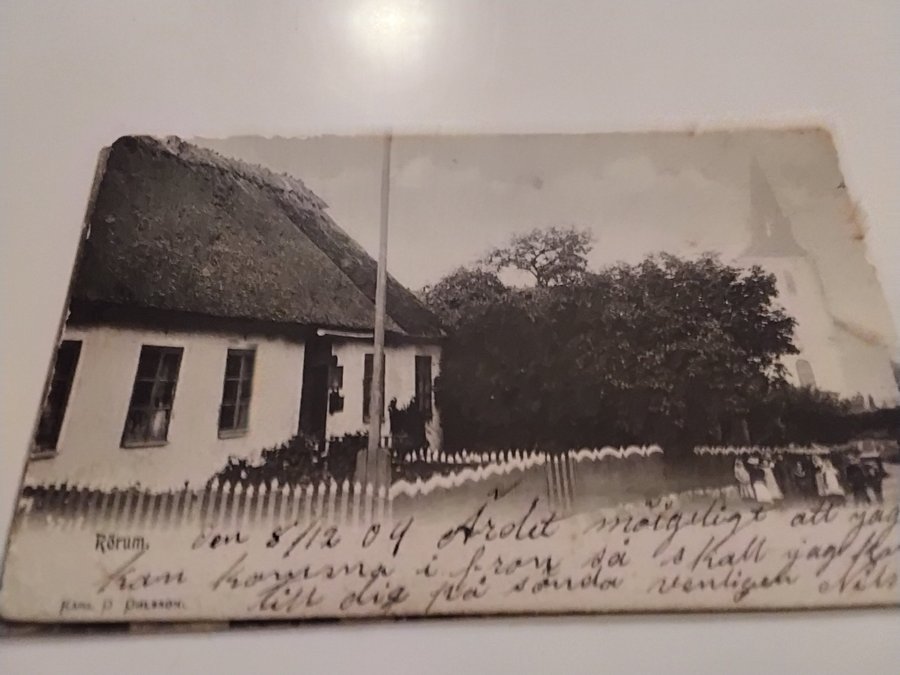 Rörum.
den 8/12 04 Ärdet möigeligt att jag
kan komma i fron så skall jag
till dig på sönda venligen Nils